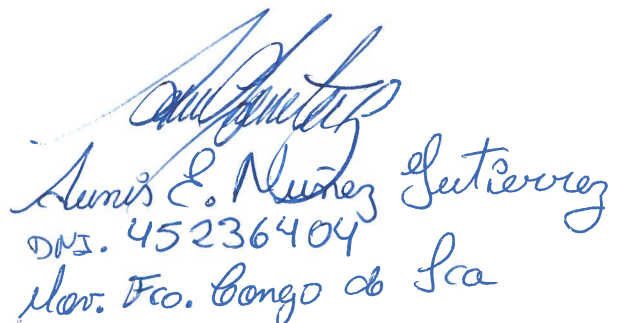 Aunis E. Nuñez Gutierrez
DNI. 45236404
Mov. Fco. Congo de Ica